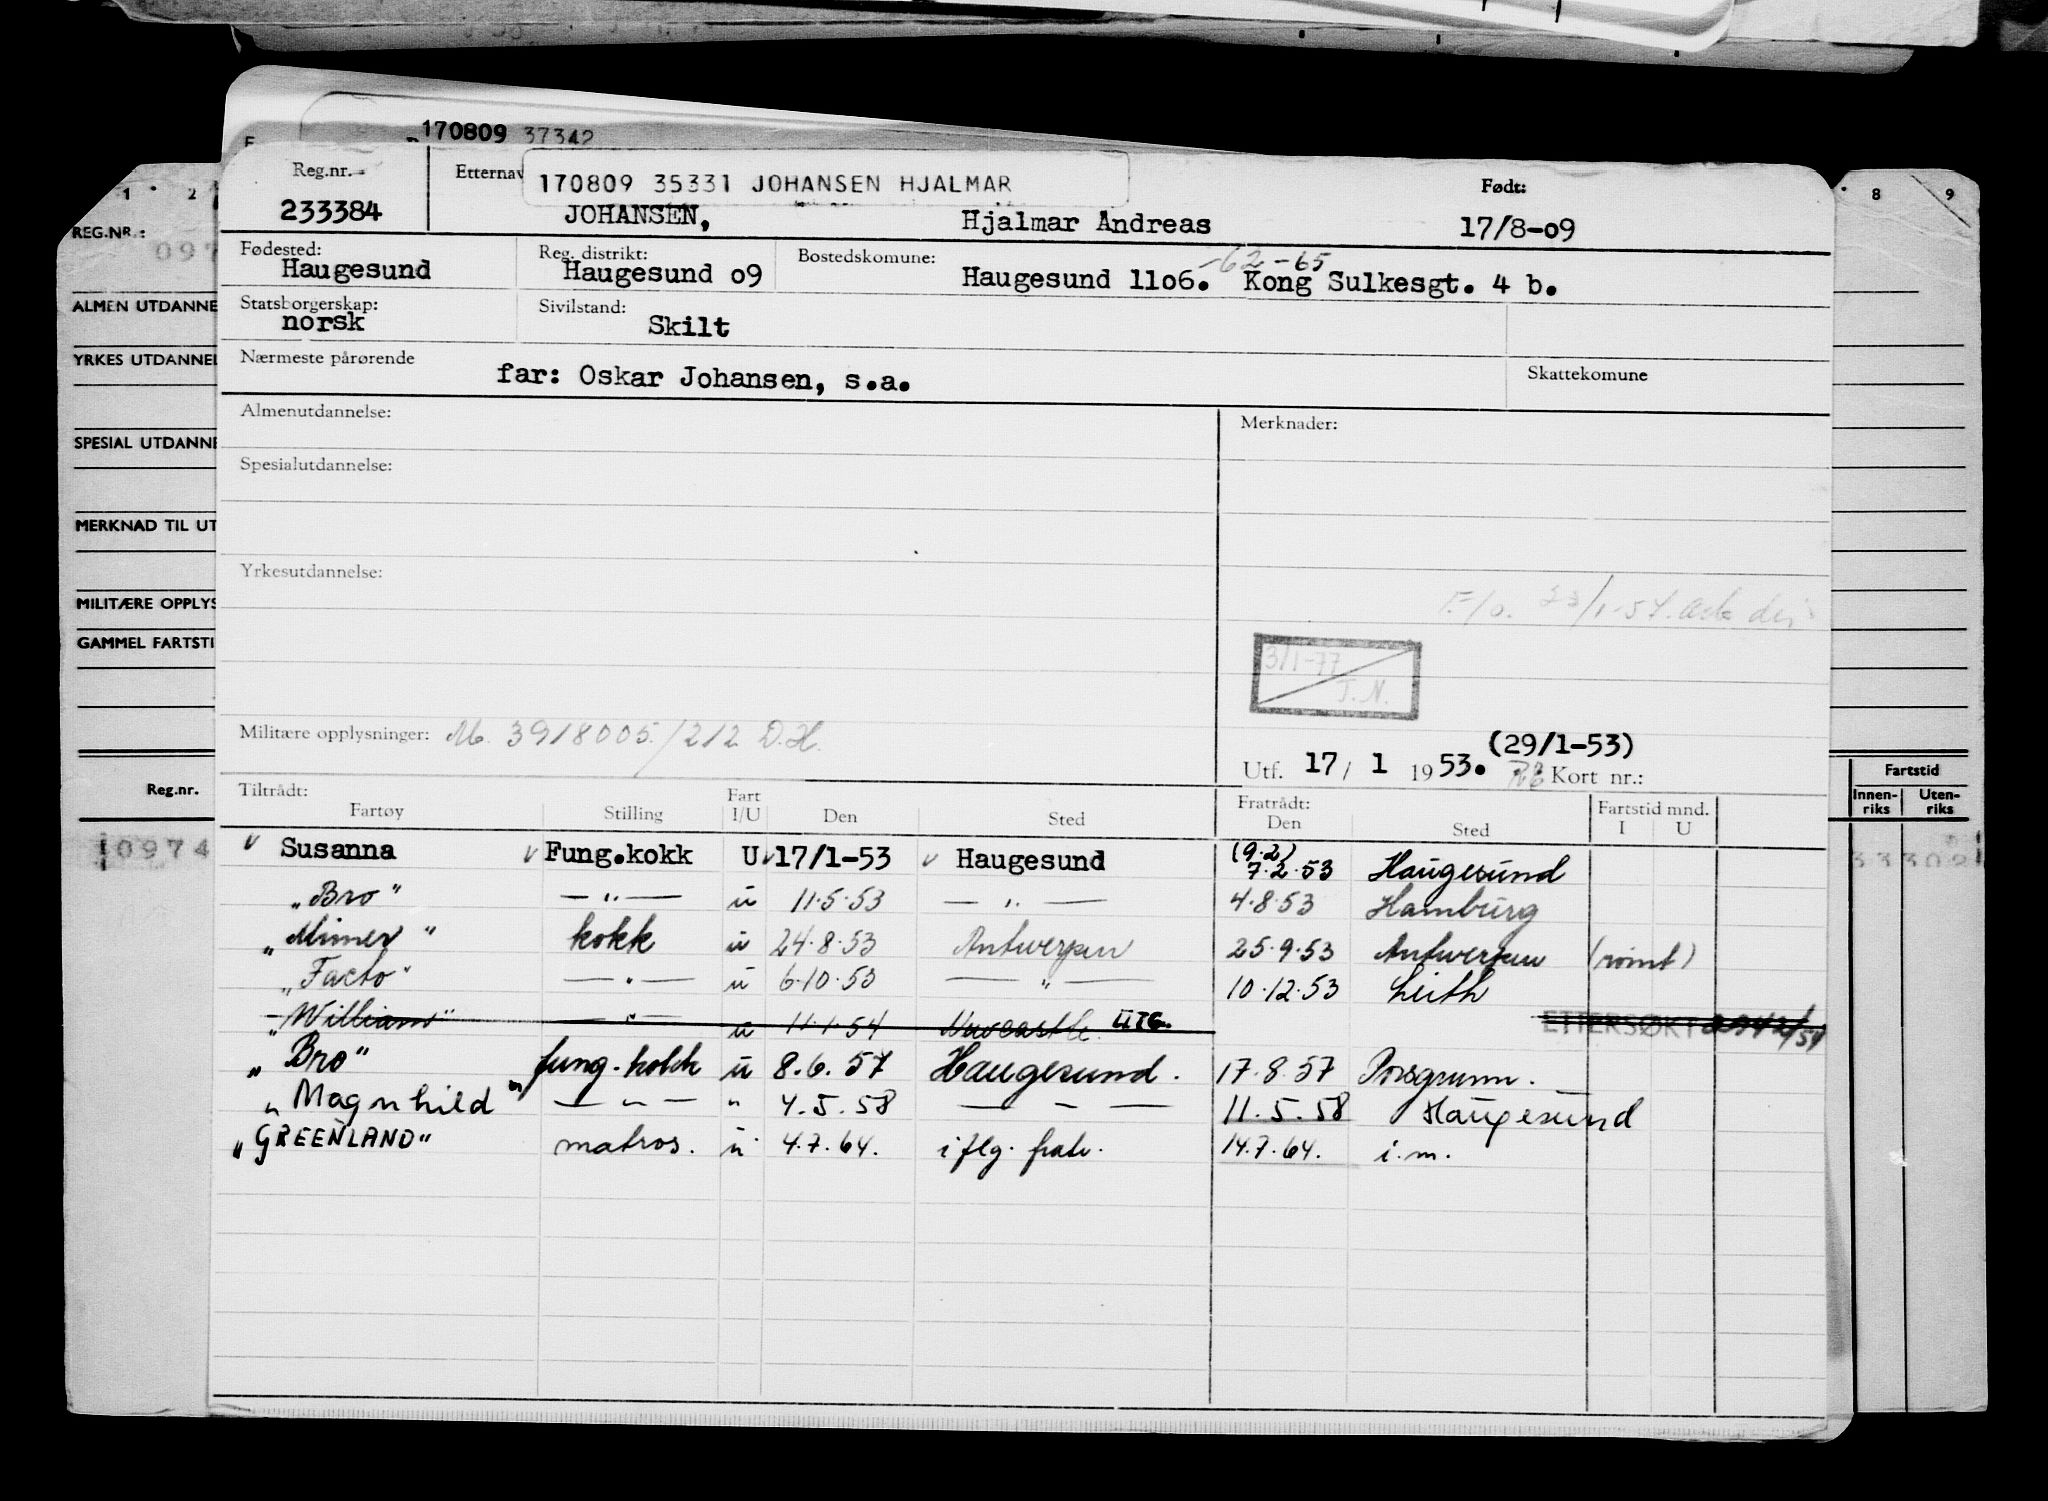 170809 37342
Reg.nr.
Etternav
170809 35331 JOHANSEN HJALMAR
Født:
233384
JOHANSEN,
Hjalmar Andreas
17/8-09
Fødested:
Haugesund
Reg. distrikt:
Haugesund 09
Bostedskomune:
-62-65
Haugesund 1106. Kong Sulkesgt. 4 b.
Statsborgerskap:
norsk
Sivilstand:
Skilt
Nærmeste pårørende
far: Oskar Johansen, s.a.
Skattekomune
Almenutdannelse:
Merknader:
Spesialutdannelse:
Yrkesutdannelse:
3/1-77
T.N.
Militære opplysninger: M. 3918005./212 D.H.
(29/1-53)
Utf. 17/ 1 1953. Kort nr.:
Tiltrådt:
Fartøy
Stilling
Fart
I/U
Den
Sted
Fratrådt:
Den
Sted
Fartstid mnd.
I U
Susanna Fung.kokk U 17/1-53 Haugesund (9.2) 7.2.53 Haugesund
„Bro" — „ — u 11.5.53 — „ — 4.8.53 Hamburg
„Mimer" kokk u 24.8.53 Antwerpen 25.9.53 Antwerpen (rømt)
„Facto" — „ — u 6.10.53 — „ — 10.12.53 Leith
„William" — „ — u 11.1.54 Newcastle UTG. ETTERSØKT
„Bro" fung. kokk u 8.6.57 Haugesund. 17.8.57 Porsgrunn.
„Magnhild" — „ — „ 4.5.58 — „ — 11.5.58 Haugesund
„GREENLAND" matros. u 4.7.64. i flg. fratr. 14.7.64. i.m.
1 2
REG.NR.:
097
ALMEN UTDANNE
YRKES UTDANNEL
SPESIAL UTDANNE
MERKNAD TIL UT
MILITÆRE OPPLYS
GAMMEL FARTSTI
Reg.nr.
10974
8 9
Fartstid
Innen-
riks
Uten-
riks